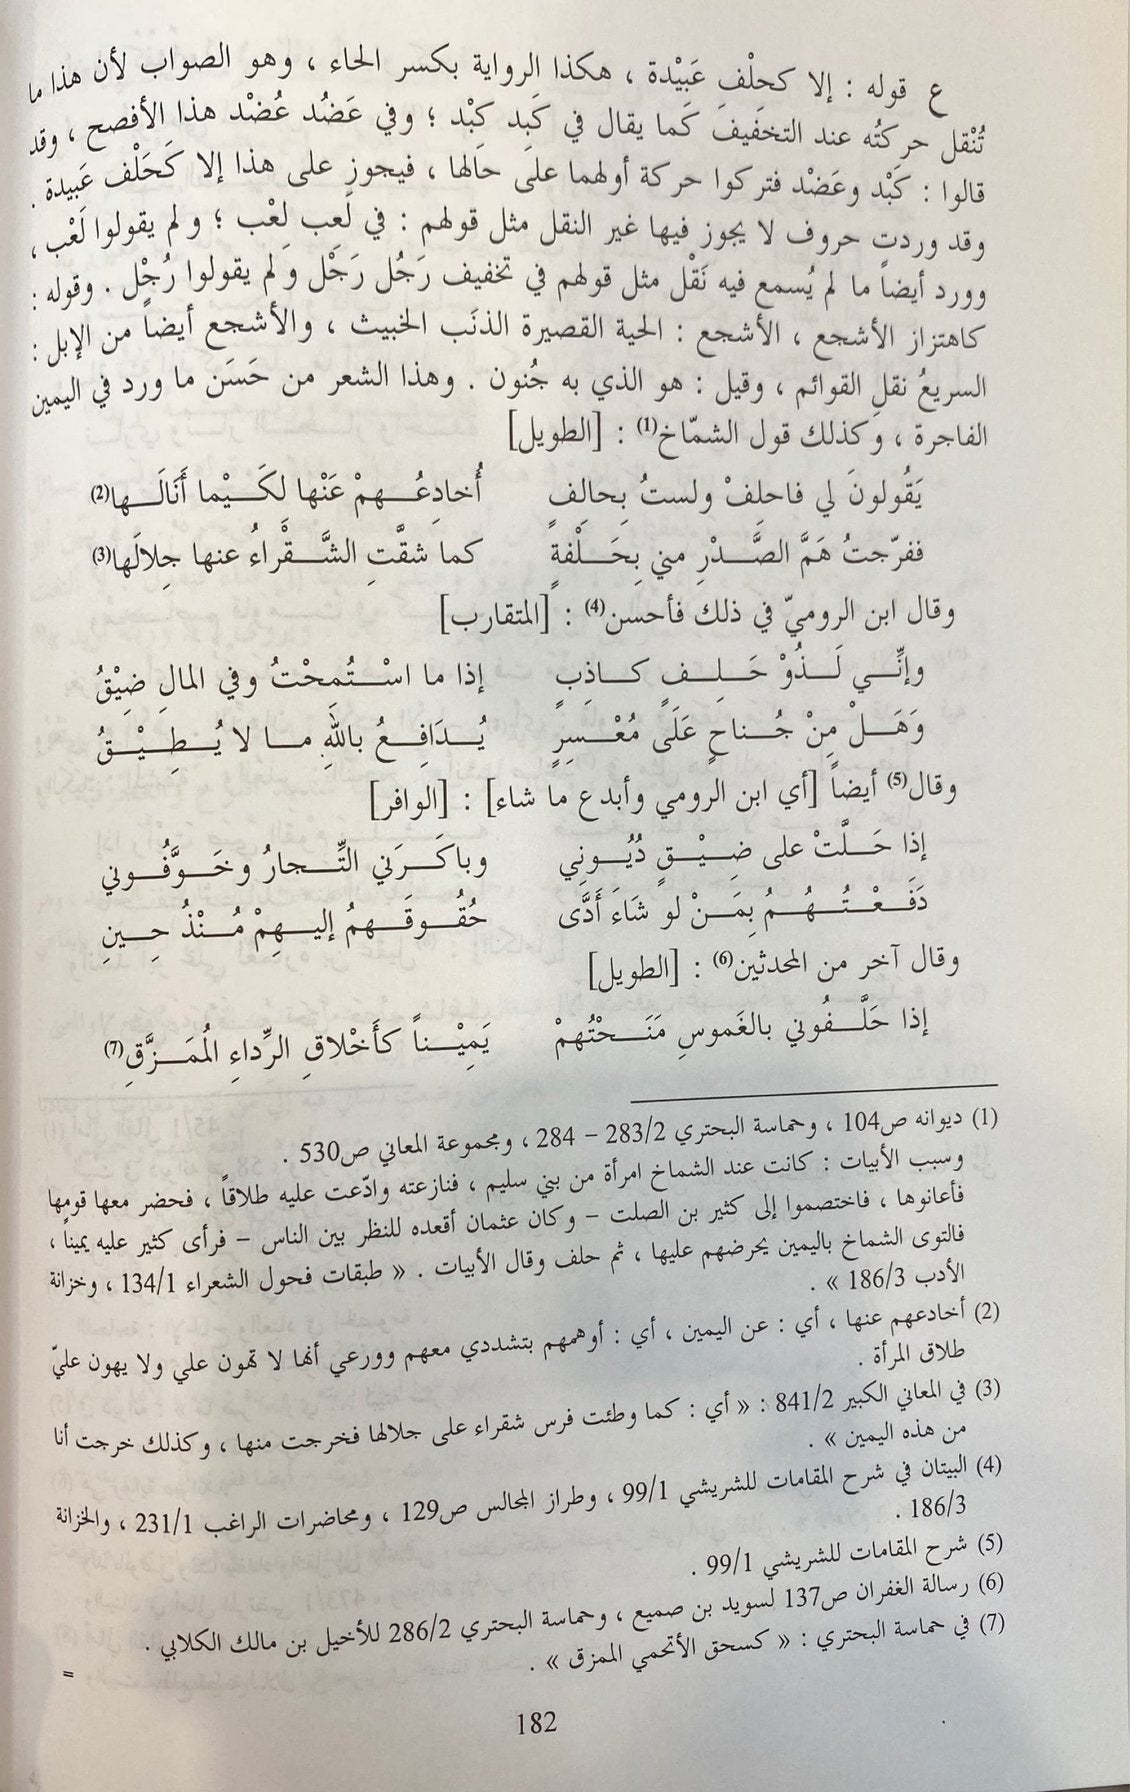 ع قوله : إلا كحلْفِ عَبيْدة ، هكذا الرواية بكسر الحاء ، وهو الصواب لأن هذا ما
تُنْقل حركتُه عند التخفيف كَما يقال في كَبِد كِبْد ؛ وفي عَضُد عُضْد هذا الأفصح ، وقد
قالوا : كَبْد وعَضْد فتركوا حركة أولهما على حالها ، فيجوز على هذا إلا كَحَلْف عَبيدة .
وقد وردت حروف لا يجوز فيها غير النقل مثل قولهم : في لَعِب لِعْب ؛ ولم يقولوا لَعْب ،
وورد أيضاً ما لم يُسمع فيه نَقْل مثل قولهم في تخفيف رَجُل رَجْل ولم يقولوا رُجْل . وقوله :
كاهتزاز الأشجع ، الأشجع : الحية القصيرة الذنَب الخبيث ، والأشجع أيضاً من الإبل :
السريعُ نقلِ القوائم ، وقيل : هو الذي به جُنون . وهذا الشعر من حَسَن ما ورد في اليمين
الفاجرة ، وكذلك قول الشمّاخ(1) : [الطويل]
يَقُولونَ لي فاحلِفْ ولستُ بِحالِفٍ أُخادِعُهمْ عَنْها لكَيْما أَنَالَها(2)
ففرّجتُ هَمَّ الصَّدْرِ مني بِحَلْفةٍ كما شقَّتِ الشَّقْراءُ عنها جِلالَها(3)
وقال ابن الروميّ في ذلك فأحسن(4) : [المتقارب]
وإنِّي لَذُوْ حَلِفٍ كاذِبٍ إذا ما اسْتُمِحْتُ وفي المالِ ضِيْقُ
وَهَلْ مِنْ جُناحٍ عَلَى مُعْسِرٍ يُدَافِعُ باللهِ ما لا يُطِيْقُ
وقال(5) أيضاً [أي ابن الرومي وأبدع ما شاء] : [الوافر]
إذا حَلَّتْ على ضِيْقٍ دُيُونِي وباكَرَني التِّجارُ وخَوَّفُوني
دَفَعْتُهُمُ بِمَنْ لو شَاءَ أَدَّى حُقُوقَهمُ إليهِمْ مُنْذُ حِينِ
وقال آخر من المحدثين(6) : [الطويل]
إذا حَلَّفُوني بالغَموسِ مَنَحْتُهمْ يَمِيْناً كأَخْلاقِ الرِّداءِ المُمَزَّقِ(7)
(1) ديوانه ص104 ، وحماسة البحتري 283/2 – 284 ، ومجموعة المعاني ص530 .
وسبب الأبيات : كانت عند الشماخ امرأة من بني سليم ، فنازعته وادّعت عليه طلاقاً ، فحضر معها قومها
فأعانوها ، فاختصموا إلى كثير بن الصلت – وكان عثمان أقعده للنظر بين الناس – فرأى كثير عليه يميناً ،
فالتوى الشماخ باليمين يحرضهم عليها ، ثم حلف وقال الأبيات . « طبقات فحول الشعراء 134/1 ، وخزانة
الأدب 186/3 » .
(2) أخادعهم عنها ، أي : عن اليمين ، أي : أوهمهم بتشددي معهم وورعي أنها لا تهون علي ولا يهون عليّ
طلاق المرأة .
(3) في المعاني الكبير 841/2 : « أي : كما وطئت فرس شقراء على جلالها فخرجت منها ، وكذلك خرجت أنا
من هذه اليمين » .
(4) البيتان في شرح المقامات للشريشي 99/1 ، وطراز المجالس ص129 ، ومحاضرات الراغب 231/1 ، والخزانة
186/3 .
(5) شرح المقامات للشريشي 99/1 .
(6) رسالة الغفران ص137 لسويد بن صميع ، وحماسة البحتري 286/2 للأخيل بن مالك الكلابي .
(7) في حماسة البحتري : « كسحق الأتحمي الممزق » .
=
182